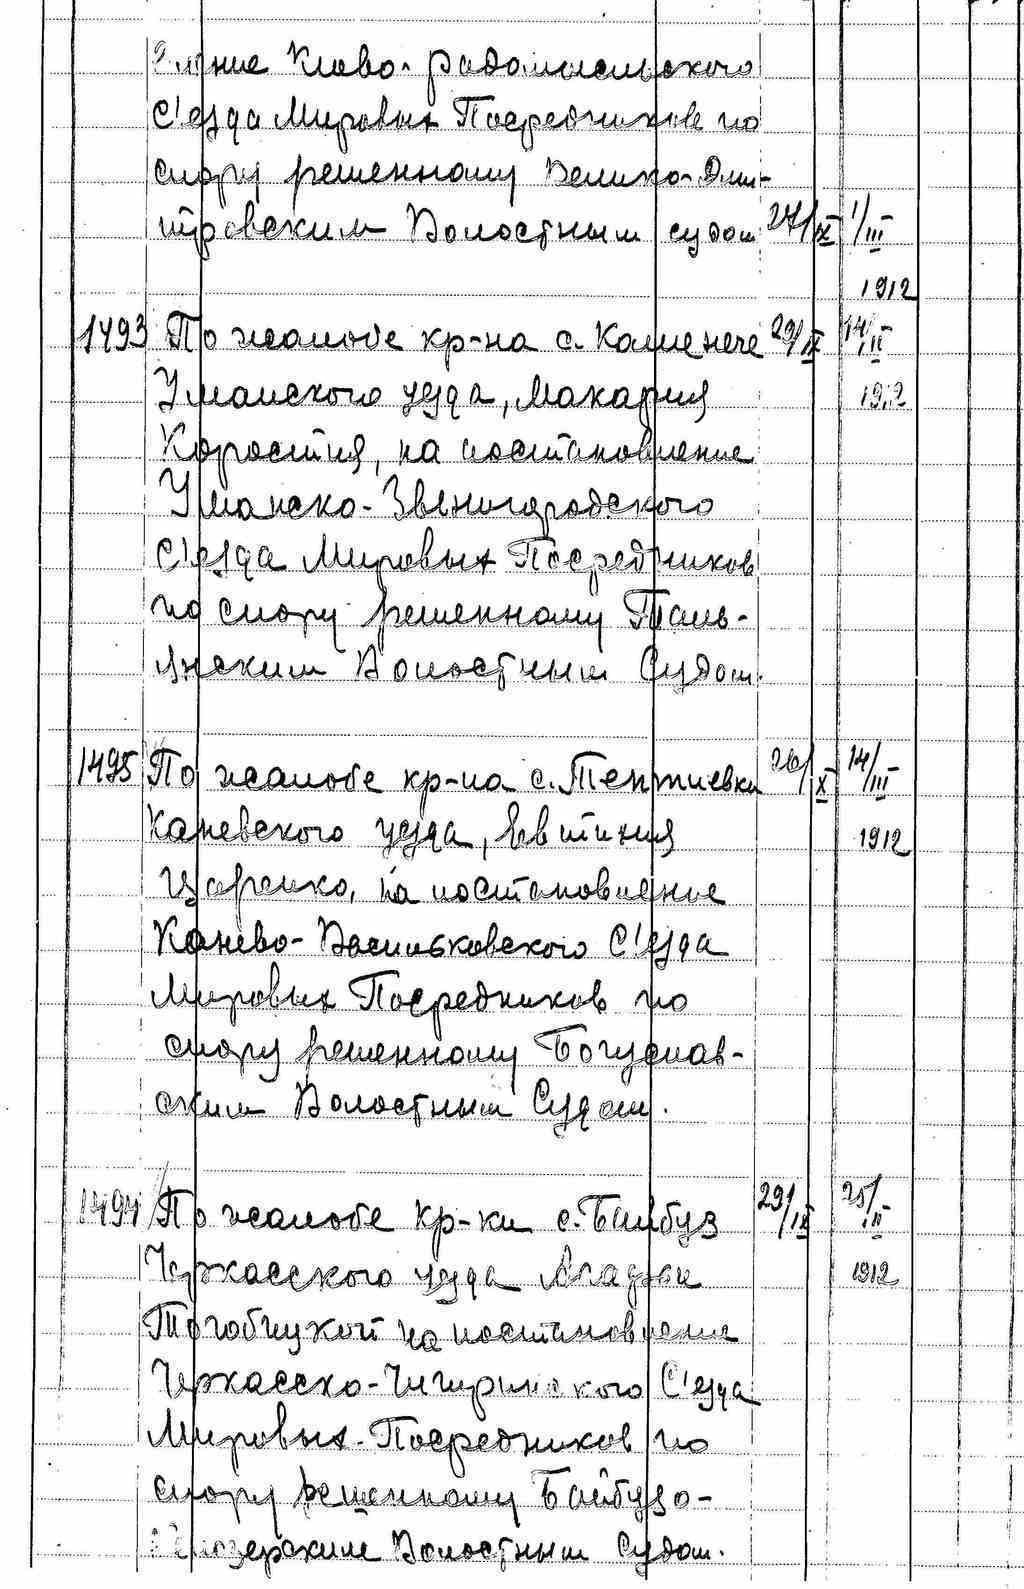 ление Киево-радомысльского
С'езда Мировых Посредников по
спору решенному Велико-Дми-
тровским Волостным судом 27/IX 1/III
1912
1493 По жалобе кр-на с. Каменече 29/IX 14/II
Уманского уезда, Макария 1912
Коростия, на постановление
Уманско-Звенигородского
С'езда Мировых Посредников
по спору решенному Таль-
янским Волостным Судом.
1495 По жалобе кр-на с. Тептиевки 26/X 14/III
Каневского уезда, Евтихия 1912
Царенко, на постановление
Канево-Васильковского С'езда
Мировых Посредников по
спору решенному Богуслав-
ским Волостным Судом.
1494 По жалобе кр-ки с. Байбуз 29/IX 25/II
Черкасского уезда 1912
на постановление
Черкасско-Чигиринского С'езда
Мировых-Посредников по
спору решенному Байбузо-
Волостным Судом.